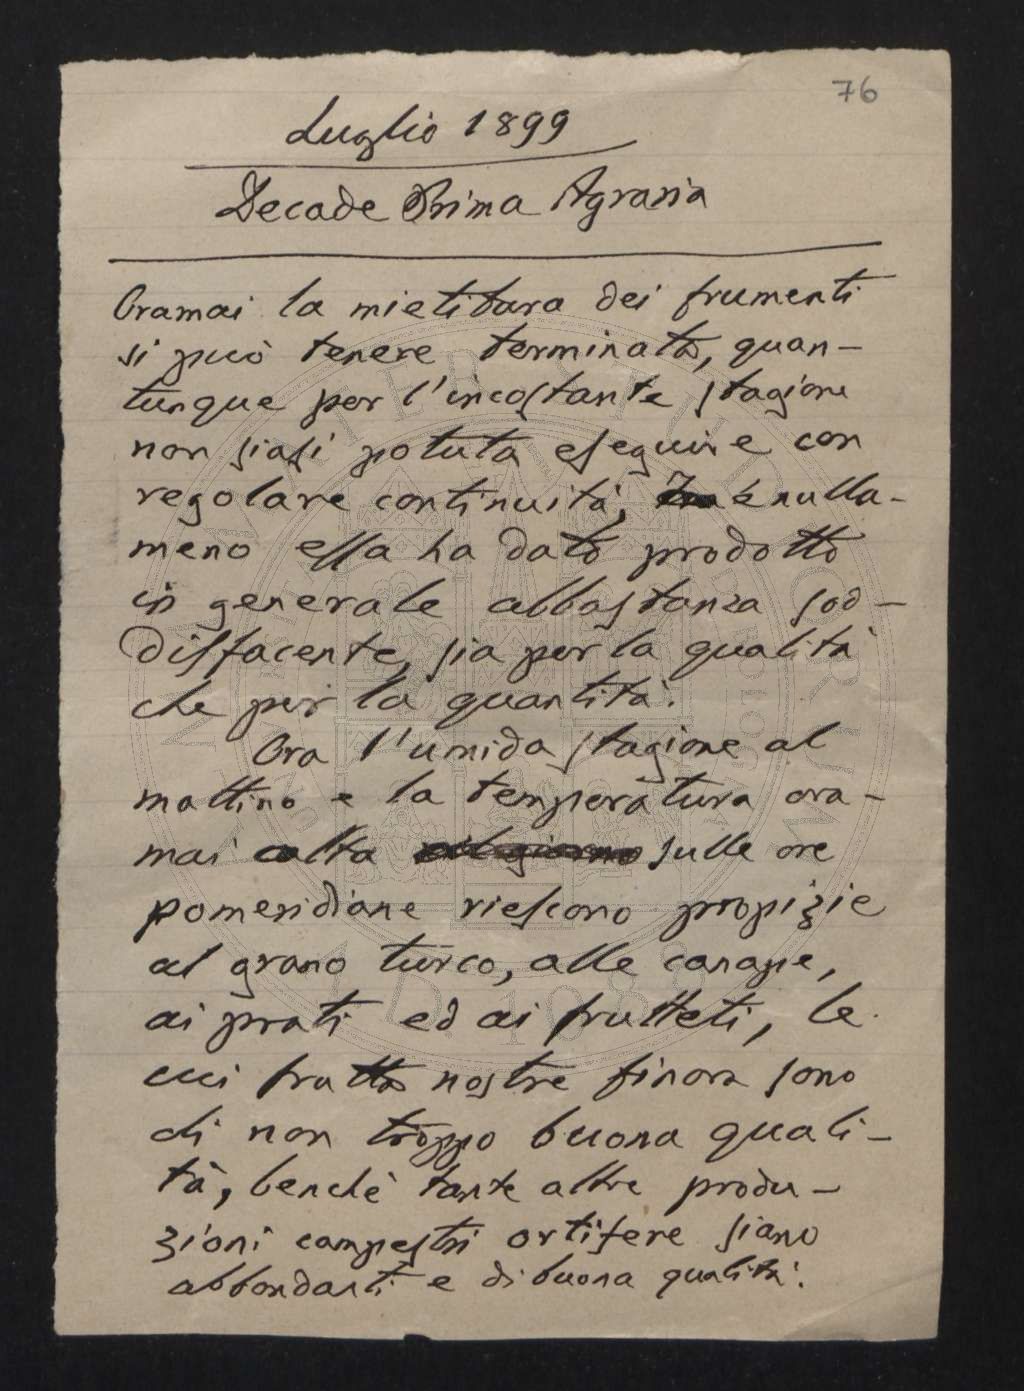 76
Luglio 1899
Decade Prima Agraria
Oramai la mietitura dei frumenti
si può tenere terminata, quan-
tunque per l'incostante stagione
non siasi potuta eseguire con
regolare continuità, nulla-
meno essa ha dato prodotto
in generale abbastanza sod-
disfacente, sia per la qualità
che per la quantità.
Ora l'umida stagione al
mattino e la temperatura ora-
mai alta sulle ore
pomeridiane riescono propizie
al grano turco, alle canape,
ai prati ed ai frutteti, le
cui frutta nostre finora sono
di non troppo buona quali-
tà, benchè tante altre produ-
zioni campestri ortifere siano
abbondanti e di buona qualità.